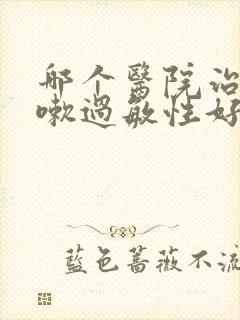 哪个醫院治
嗽過敏性好
藍色薔薇不流